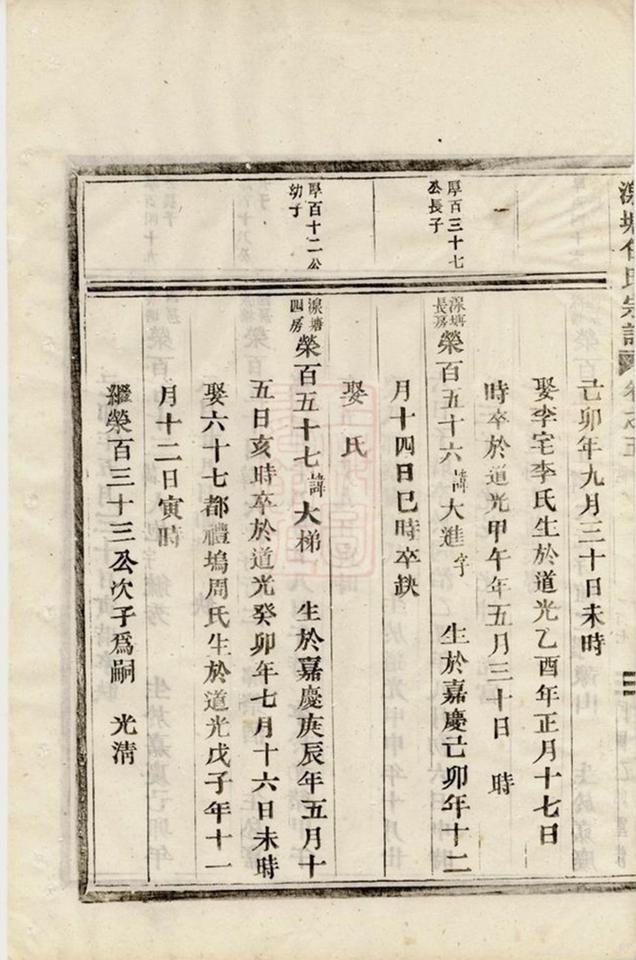 己卯年九月三十日未時
娶李宅李氏生於道光乙酉年正月十七日
時卒於道光甲午年五月三十日　時
厚百三十七
公長子
深塘
長房
榮百五十六諱大進字　生於嘉慶己卯年十二
月十四日巳時卒缺
娶氏
厚百十二公
幼子
深塘
四房
榮百五十七諱大梯　生於嘉慶庚辰年五月十
五日亥時卒於道光癸卯年七月十六日未時
娶六十七都禮塢周氏生於道光戊子年十一
月十二日寅時
繼榮百三十三公次子爲嗣　光清